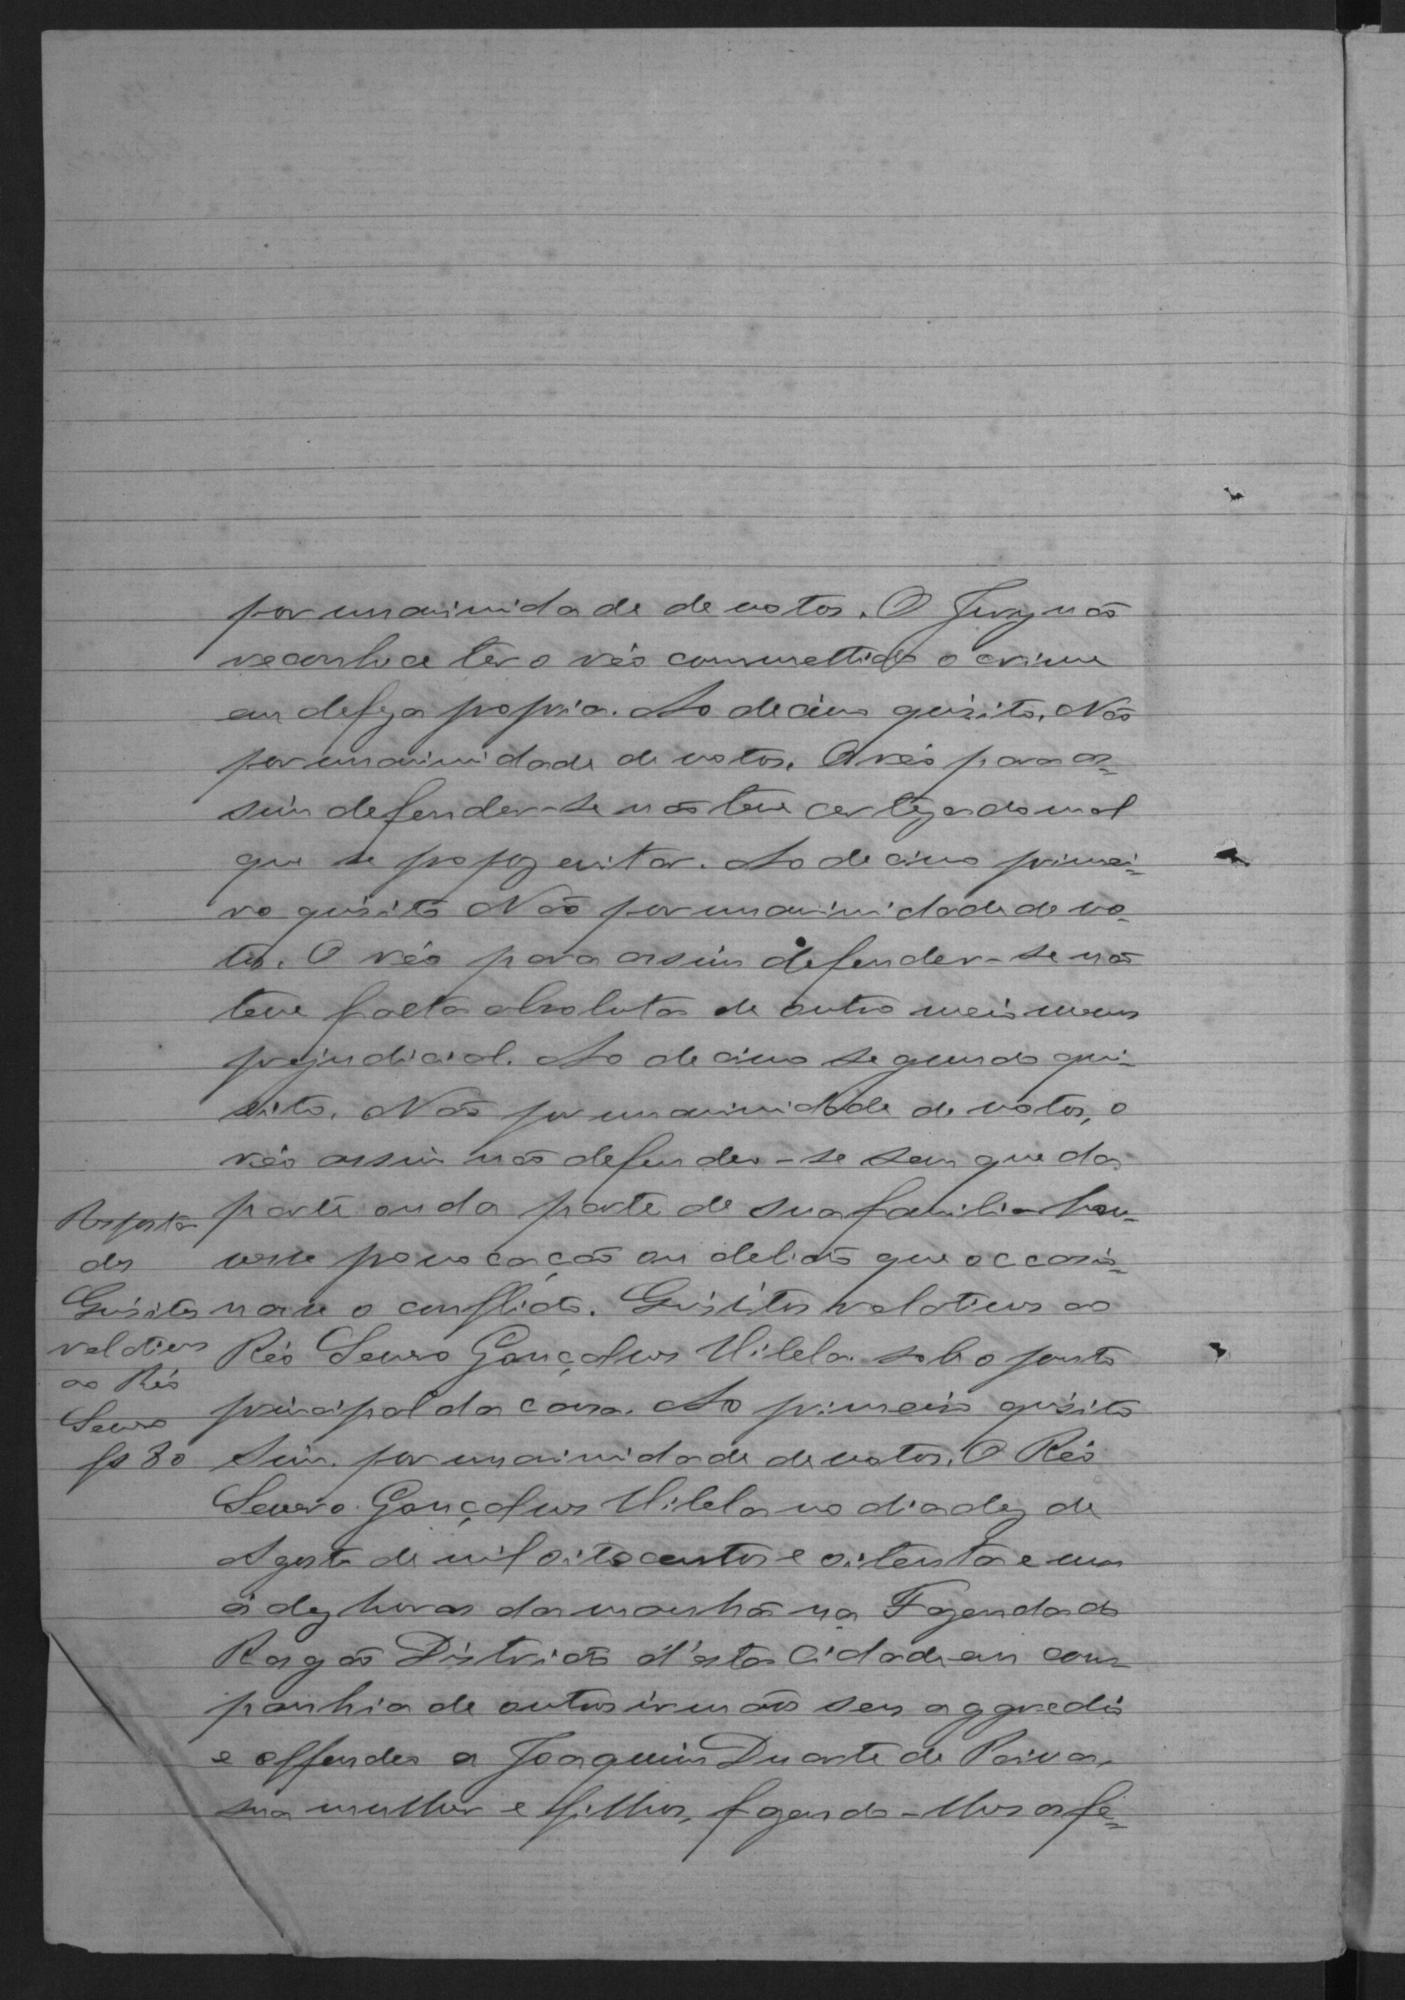 por unanimidade de votos. O Jury não
reconhece ter o réo commettido o crime
em defeza propria. Ao decimo quisito. Não
por unanimidade de votos. O réo para as=
sim defender-se não teve certeza do mal
que se propoz evitar. Ao decimo primei=
ro quisito Não por unanimidade de vo-
tos. O réo para assim defender-se não
teve falta absoluta de outro meio menos
prejudicial. Ao decimo segundo qui=
sito. Não por unanimidade de votos, o
réo assim não defendeo-se sem que da
parte ou da parte de sua familia hou=
vesse provocação ou delicto que occasio=
nasse o conflicto. Quisitos relativos ao
Réo Severo Gonçalves Vilela sob o ponto
principal da causa. Ao primeiro quisito
Sim. por unanimidade de votos. O Réo
Severo Gonçalves Vilela no dia dez de
Agosto de mil oitocentos e oitenta e um
ás dez horas da manhã na Fazenda do
Rasgão Districto d'esta Cidade em com=
panhia de outros irmãos seus aggredio
e offendeo a Joaquim Duarte de Paiva,
sua mulher e filhos, fazendo-lhes as fe=
Resposta
dos
Quisitos
relativos
ao Réo
Severo
fs 80